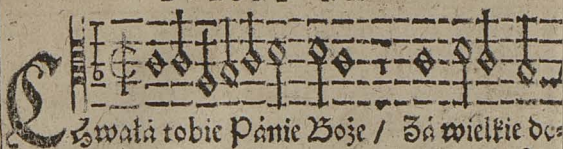 CHwałá tobie Pánie Boże / Zá wielkie do⸗